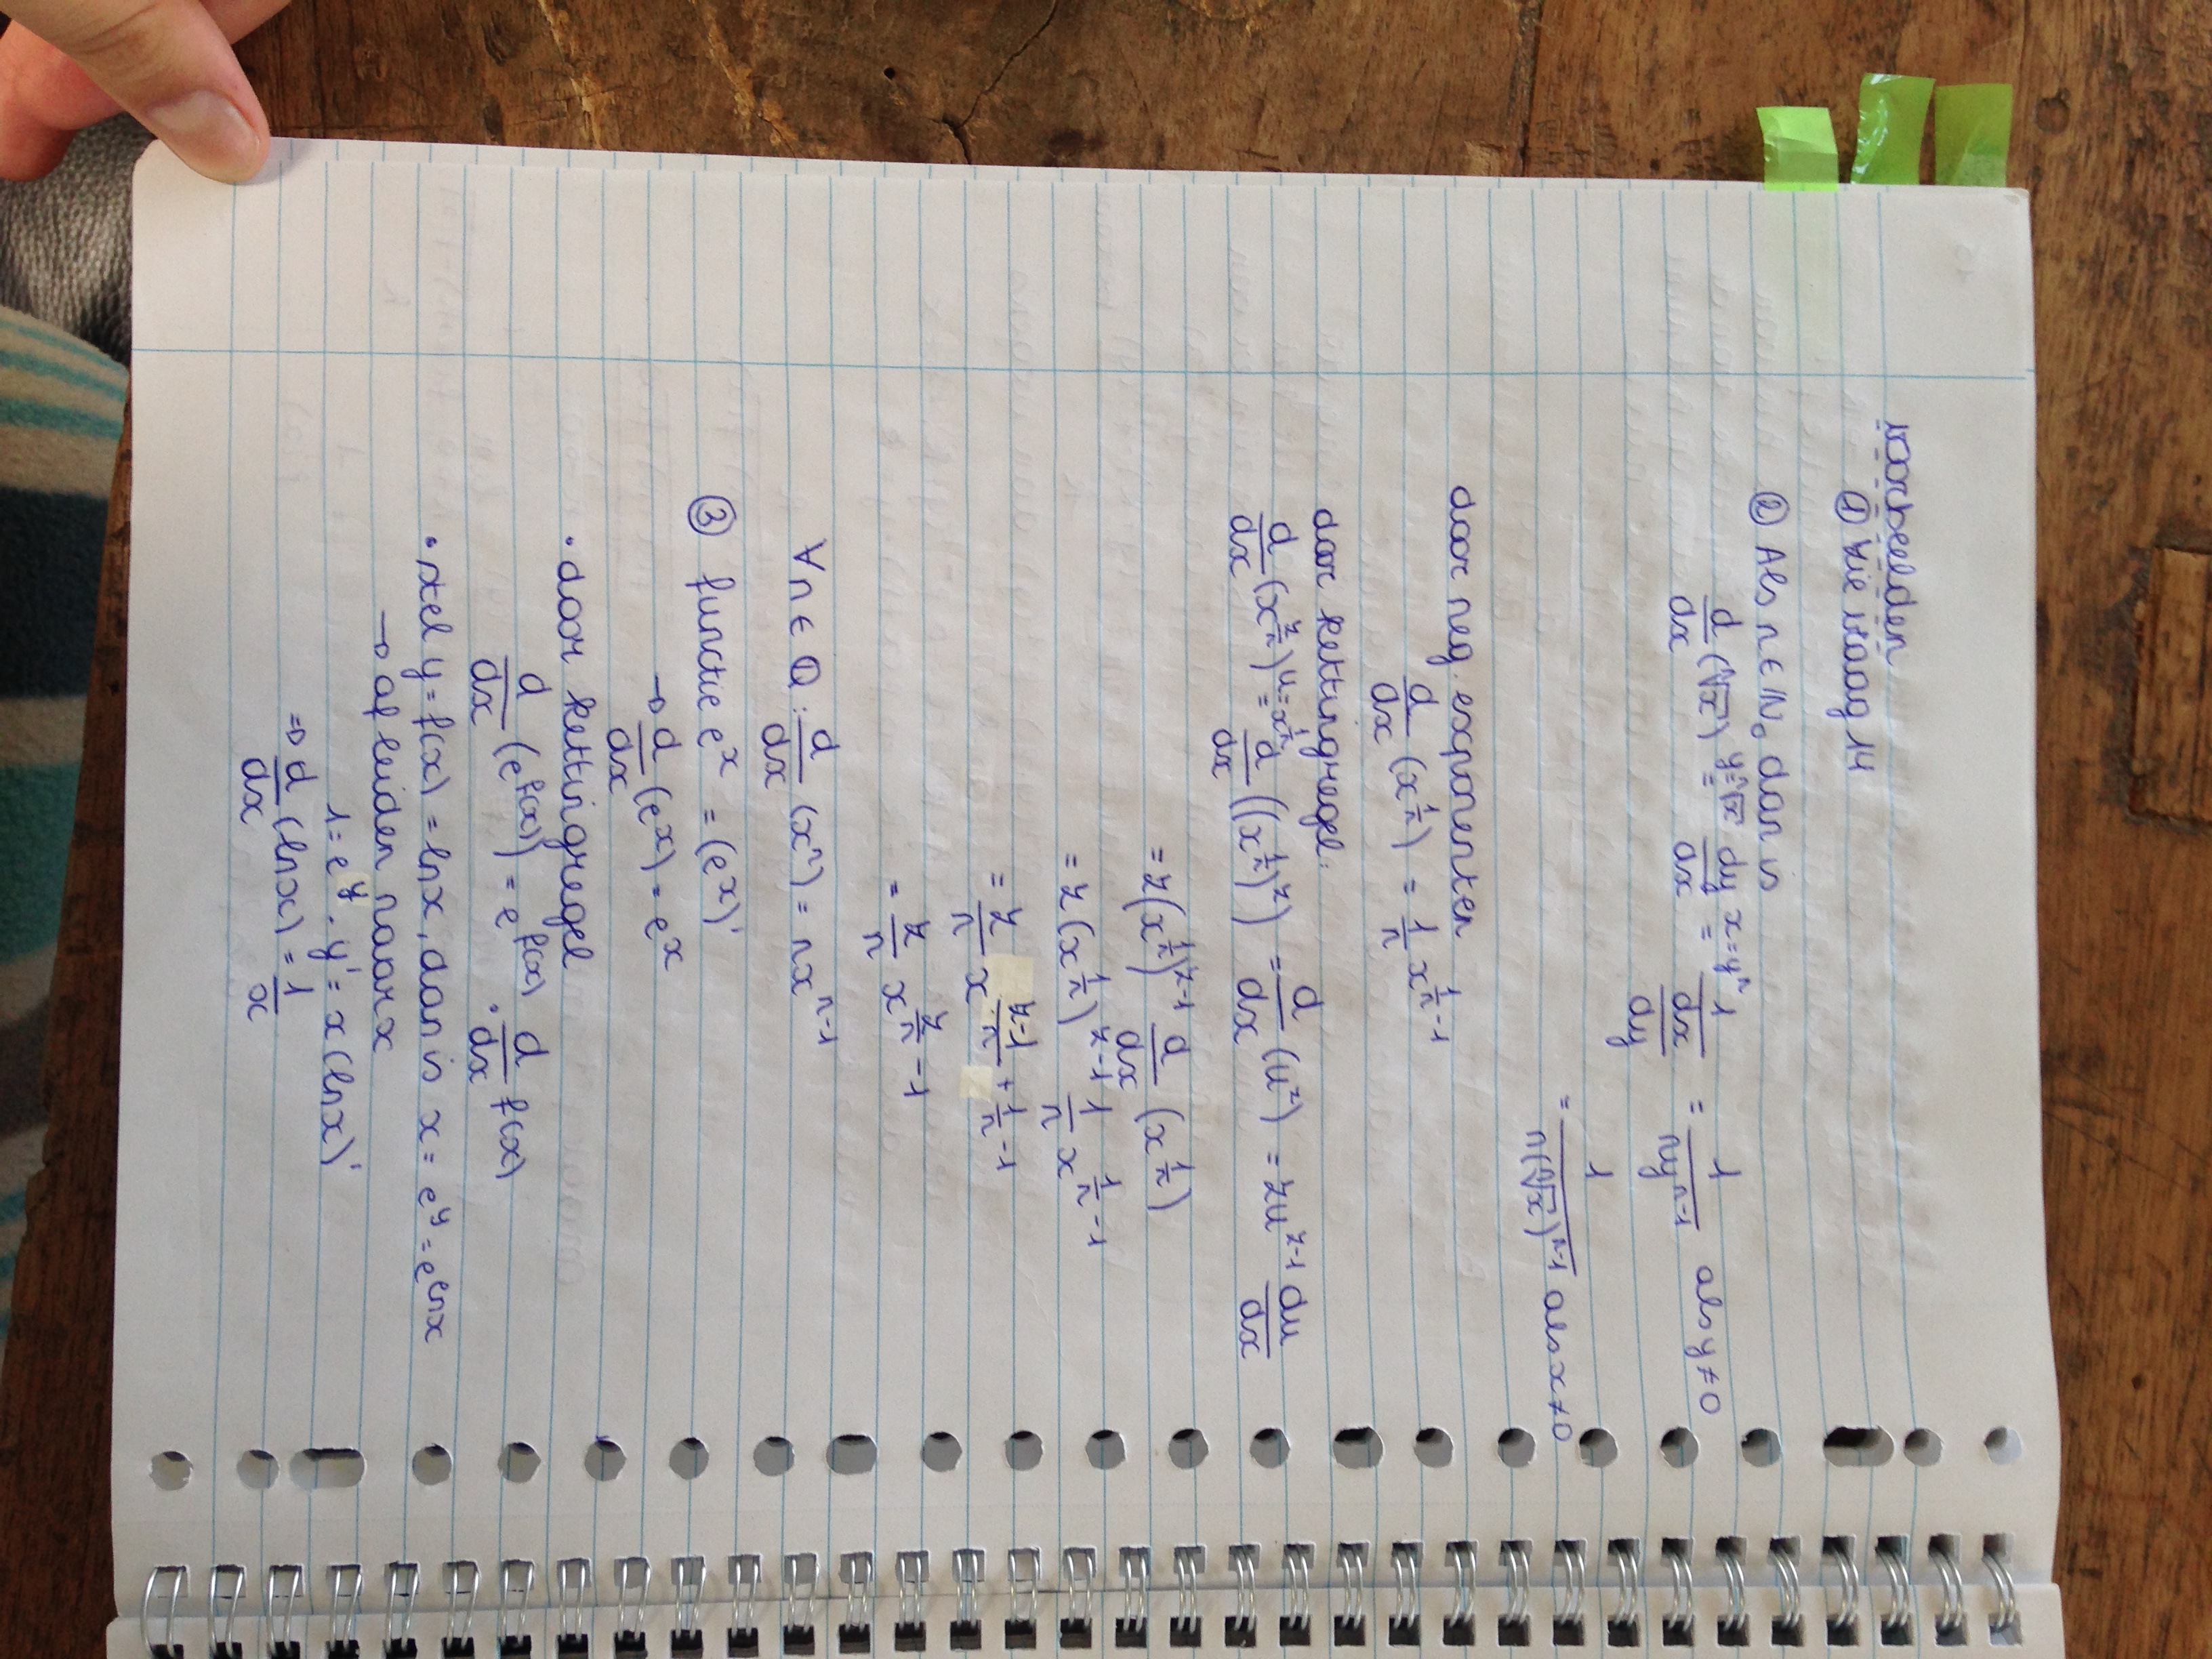 voorbeelden
① zie vraag 14
② Als n ∈ ℕ₀ dan is
d/dx (ⁿ√x) =^(y=ⁿ√x) dy/dx =^(x=yⁿ) 1/(dx/dy) = 1/(ny^(n-1)) als y≠0
= 1/(n(ⁿ√x)^(n-1)) als x≠0
door neg. exponenten
d/dx (x^(1/n)) = 1/n x^(1/n - 1)
door kettingregel:
d/dx (x^(z/n)) =^(u=x^(1/n)) d/dx ((x^(1/n))^z) = d/dx (u^z) = zu^(z-1) du/dx
= z(x^(1/n))^(z-1) d/dx (x^(1/n))
= z(x^(1/n))^(z-1) 1/n x^(1/n - 1)
= z/n x^((z-1)/n + 1/n - 1)
= z/n x^(z/n - 1)
∀n ∈ ℚ : d/dx (xⁿ) = nx^(n-1)
③ functie e^x = (e^x)'
→ d/dx (e^x) = e^x
• door kettingregel
d/dx (e^(f(x))) = e^(f(x)) . d/dx f(x)
• stel y = f(x) = ln x, dan is x = e^y = e^(ln x)
→ afleiden naar x
1 = e^y . y' = x(ln x)'
⇒ d/dx (ln x) = 1/x